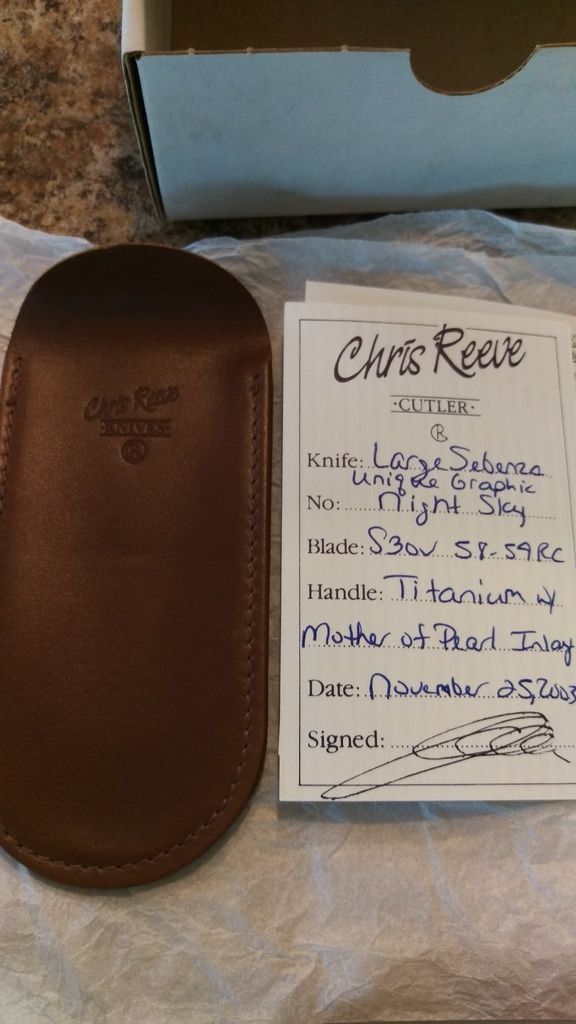 Chris Reeve
KNIVES
R
Chris Reeve
·CUTLER·
R
Knife: Large Sebenza
Unique Graphic
No: Night Sky
Blade: S30V 58-59RC
Handle: Titanium w/
Mother of Pearl Inlay
Date: November 25, 2003
Signed: